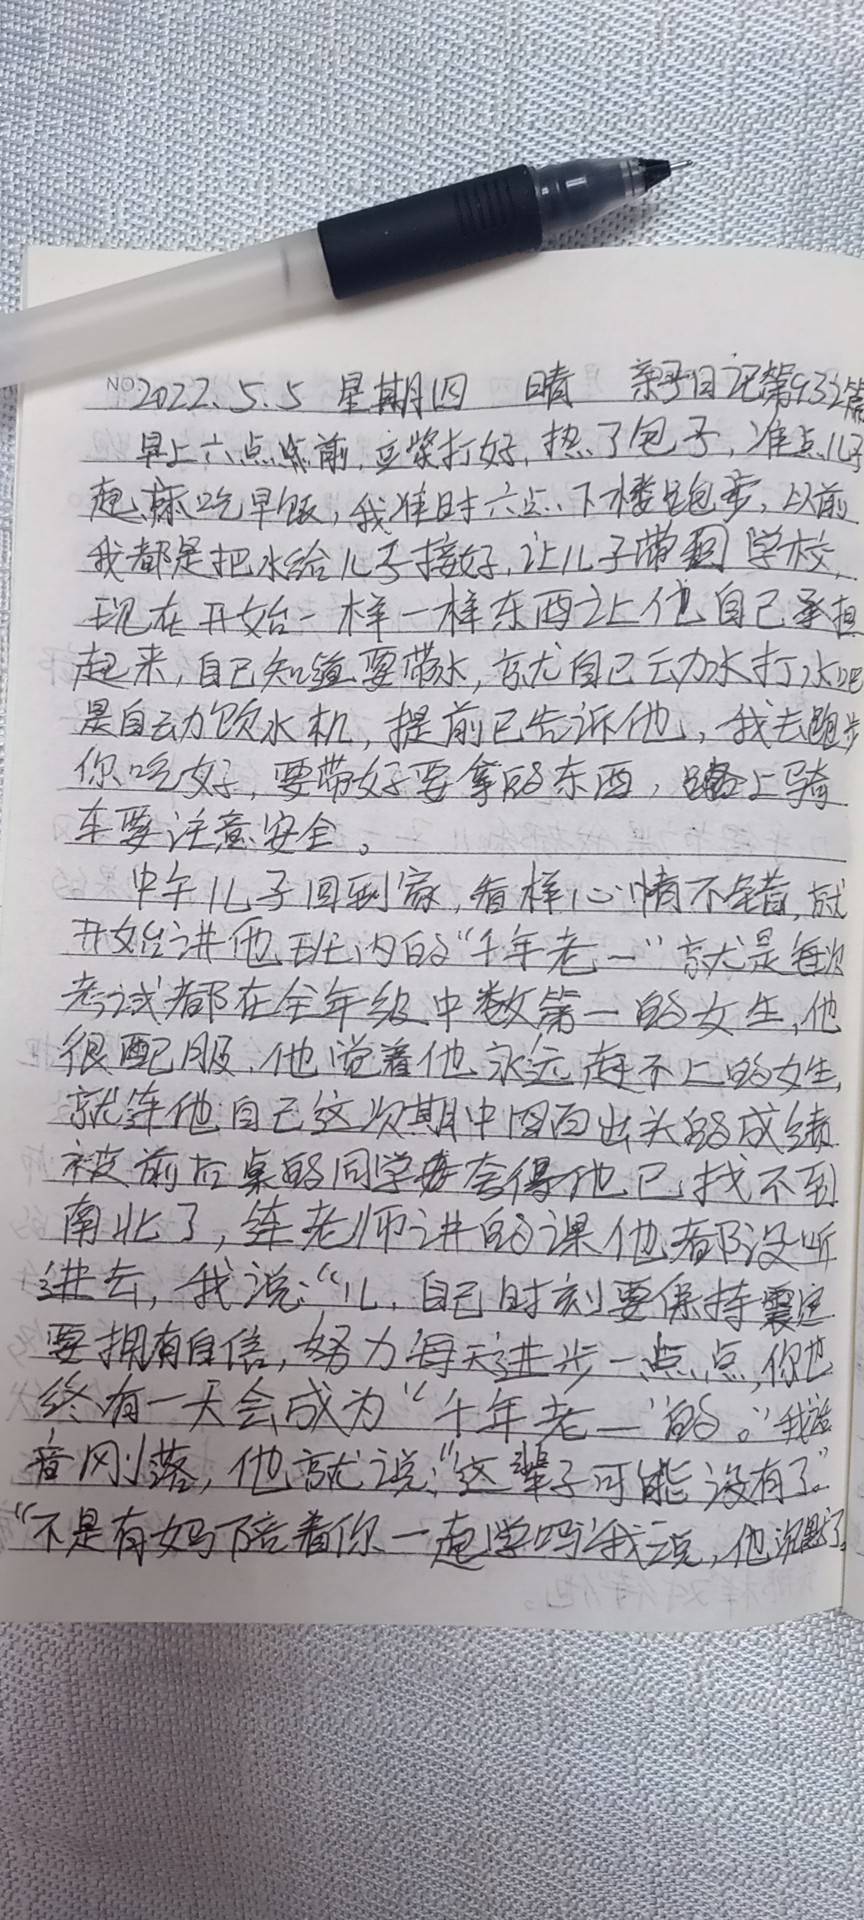 NO
2022.5.5 星期四 晴 亲子日记第932篇
早上六点点前,豆浆打好,热了包子,准点儿子
起床吃早饭,我准时六点下楼跑步,以前
我都是把水给儿子接好,让儿子带到学校,
现在开始一样一样东西让他自己承担
起来,自己知道要带水,就自己动水打水吧
是自动饮水机,提前已告诉他,我去跑步
你吃好,要带好要拿的东西,路上骑
车要注意安全。
中午儿子回到家,看样心情不错,就
开始讲他班内的“千年老一”就是每次
考试都在全年级中数第一的女生,他
很配服,他觉着他永远赶不上的女生,
就连他自己这次期中因百出头的成绩
被前后桌的同学夸得他已找不到
南北了,连老师讲的课他都没听
进去,我说:“儿,自己时刻要保持震定
要拥有自信,努力每天进步一点点,你也
终有一天会成为“千年老一”的。”我话
音刚落,他就说:“这辈子可能没有了。”
“不是有妈陪着你一起学吗”我说,他沉默了,